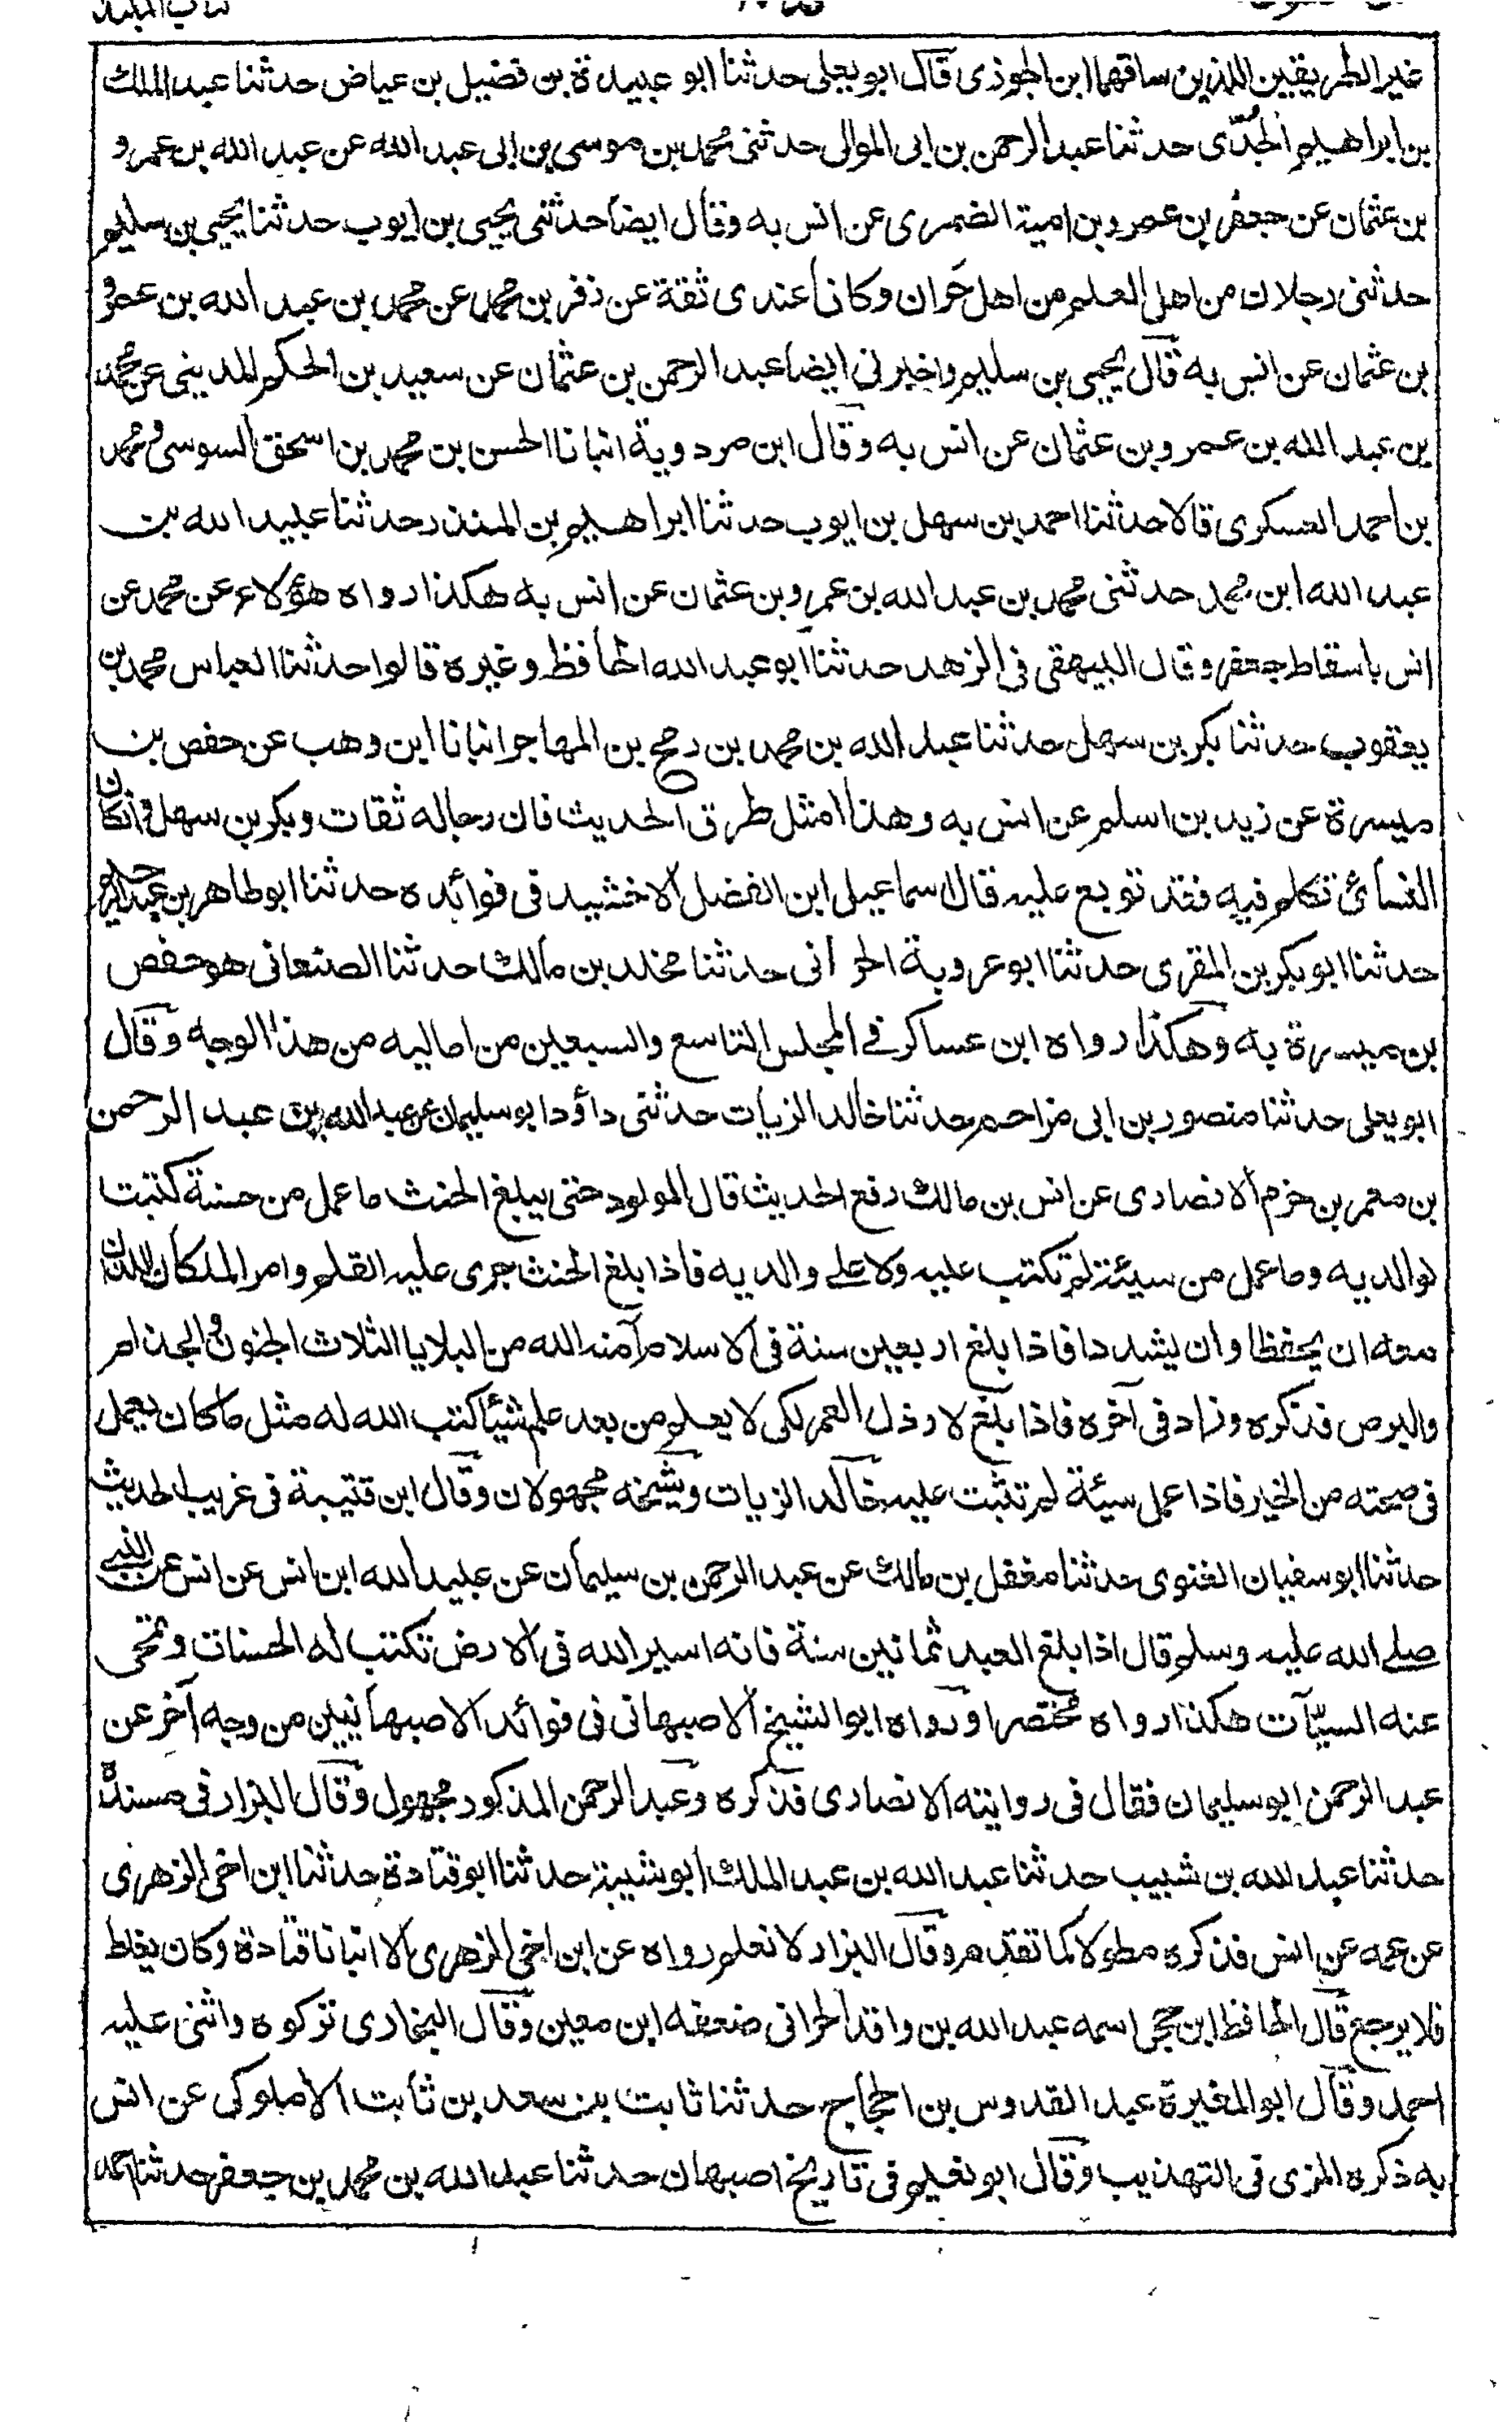 غير الطريقين اللذين ساقهما ابن الجوزى قال ابو يعلى حدثنا ابو عبيدة بن فضيل بن عياض حدثنا عبد الملك
بن ابراهيم الجُدّى حدثنا عبد الرحمن بن ابى الموالى حدثنى محمد بن موسى بن ابى عبد الله عن عبد الله بن عمرو
بن عثمان عن جعفر بن عمرو بن امية الضمرى عن انس به وقال ايضا حدثنى يحيى بن ايوب حدثنا يحيى بن سليم
حدثنى رجلان من اهل العلم من اهل حَران وكانا عندى ثقة عن زفر بن محمد عن محمد بن عبد الله بن عمرو
بن عثمان عن انس به قال يحيى بن سليم واخبرنى ايضا عبد الرحمن بن عثمان عن سعيد بن الحكم المدينى عن محمد
بن عبد الله بن عمرو بن عثمان عن انس به وقال ابن مردوية انبانا الحسن بن محمد بن اسحق السوسى ومحمد
بن احمد العسكرى قالا حدثنا احمد بن سهل بن ايوب حدثنا ابراهيم بن المنذر حدثنا عبيد الله بن
عبد الله ابن محمد حدثنى محمد بن عبد الله بن عمرو بن عثمان عن انس به هكذا رواه هؤلاء عن محمد عن
انس باسقاط جعفر وقال البيهقى فى الزهد حدثنا ابو عبد الله الحافظ وغيره قالوا حدثنا العباس محمد بن
يعقوب حدثنا بكر بن سهل حدثنا عبد الله بن محمد بن رمح بن المهاجر انبانا ابن وهب عن حفص بن
ميسرة عن زيد بن اسلم عن انس به وهذا امثل طرق الحديث فان رجاله ثقات وبكر بن سهل وان كان
النسائ تكلم فيه فقد توبع عليه قال سماعيل ابن الفضل الاخشيد فى فوائده حدثنا ابو طاهر بن عبد الرحيم
حدثنا ابو بكر بن المقرى حدثنا ابو عروبة الحرانى حدثنا مخلد بن مالك حدثنا الصنعانى هو حفص
بن ميسرة به وهكذا رواه ابن عساكر فى المجلس التاسع والسبعين من اماليه من هذا الوجه وقال
ابو يعلى حدثنا منصور بن ابى مزاحم حدثنا خالد الزيات حدثنى داؤد ابو سليمان عن عبد الله بن عبد الرحمن
بن معمر بن حزم الانصارى عن انس بن مالك رفع الحديث قال المولود حتى يبلغ الحنث ما عمل من حسنة كتبت
لوالديه وما عمل من سيئة لم تكتب عليه ولا على والديه فاذا بلغ الحنث جرى عليه القلم وامر الملكان اللذان
معه ان يحفظا وان يشددا فاذا بلغ اربعين سنة فى الاسلام آمنه الله من البلايا الثلاث الجنون والجذام
والبرص فذكره وزاد فى آخره فاذا بلغ لارذل العمر لكى لا يعلم من بعد علم شيئا كتب الله له مثل ما كان يعمل
فى صحته من الخير فاذا عمل سيئة لم تثبت عليه خالد الزيات وشيخه مجهولان وقال ابن قتيبة فى غريب الحديث
حدثنا ابو سفيان الغنوى حدثنا مغفل بن مالك عن عبد الرحمن بن سليمان عن عبيد الله ابن انس عن انس عن النبى
صلى الله عليه وسلم قال اذا بلغ العبد ثمانين سنة فانه اسير الله فى الارض تكتب له الحسنات وتمحى
عنه السيّآت هكذا رواه مختصرا ورواه ابو الشيخ الاصبهانى فى فوائد الاصبهانيين من وجه آخر عن
عبد الرحمن ابو سليمان فقال فى روايته الانصارى فذكره وعبد الرحمن المذكور مجهول وقال البزار فى مسنده
حدثنا عبد الله بن شبيب حدثنا عبد الله بن عبد الملك ابو شيبة حدثنا ابو قتادة حدثنا ابن اخى الزهرى
عن عمه عن انس فذكره مطولا كما تقدم وقال البزار لا نعلم رواه عن ابن اخى الزهرى الا انبانا قتادة وكان يغلط
فلا يرجع قال الحافظ ابن حجر اسمه عبد الله بن واقد الحرانى ضعفه ابن معين وقال البخارى تركوه واثنى عليه
احمد وقال ابو المغيرة عبد القدوس بن الحجاج حدثنا ثابت بن سعد بن ثابت الاملوكى عن انس
به ذكره المزى فى التهذيب وقال ابو نعيم فى تاريخ اصبهان حدثنا عبد الله بن محمد بن جعفر حدثنا احمد